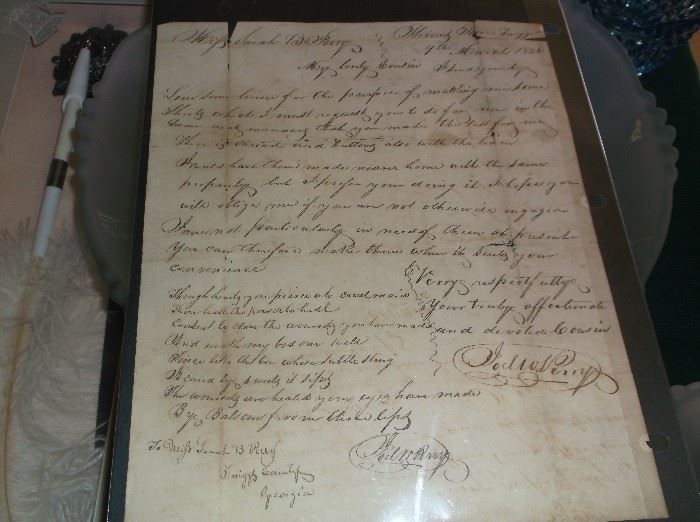 Miss Sarah B Perry
9th March 1836
My lovly Cousin I send you by
Sam some linnen for the purpose of making me some
Shirts which I must request you to do for me in the
same neat manner that you made the last for me
There is thread and buttons also with the linen
I could have them made nearer home with the same
propriety but I prefer your doing it I hope you
will oblige me if you are not otherwise engaged
I am not particularly in need of them at present
You can therefore make them when it suits your
convenience
Very respectfully
Your truly affectionate
and devoted Cousin
Though lovly you pierce at
Thou hast the power to heal
Consent to the wounds you have made
And my bosom
Since like the bee whose subtle sting
Is cured by sweets it sips
The wounds are healed your eyes have made
By Balsam from those lips
Perry
To Miss Sarah B Perry
Twiggs County
Georgia
Perry